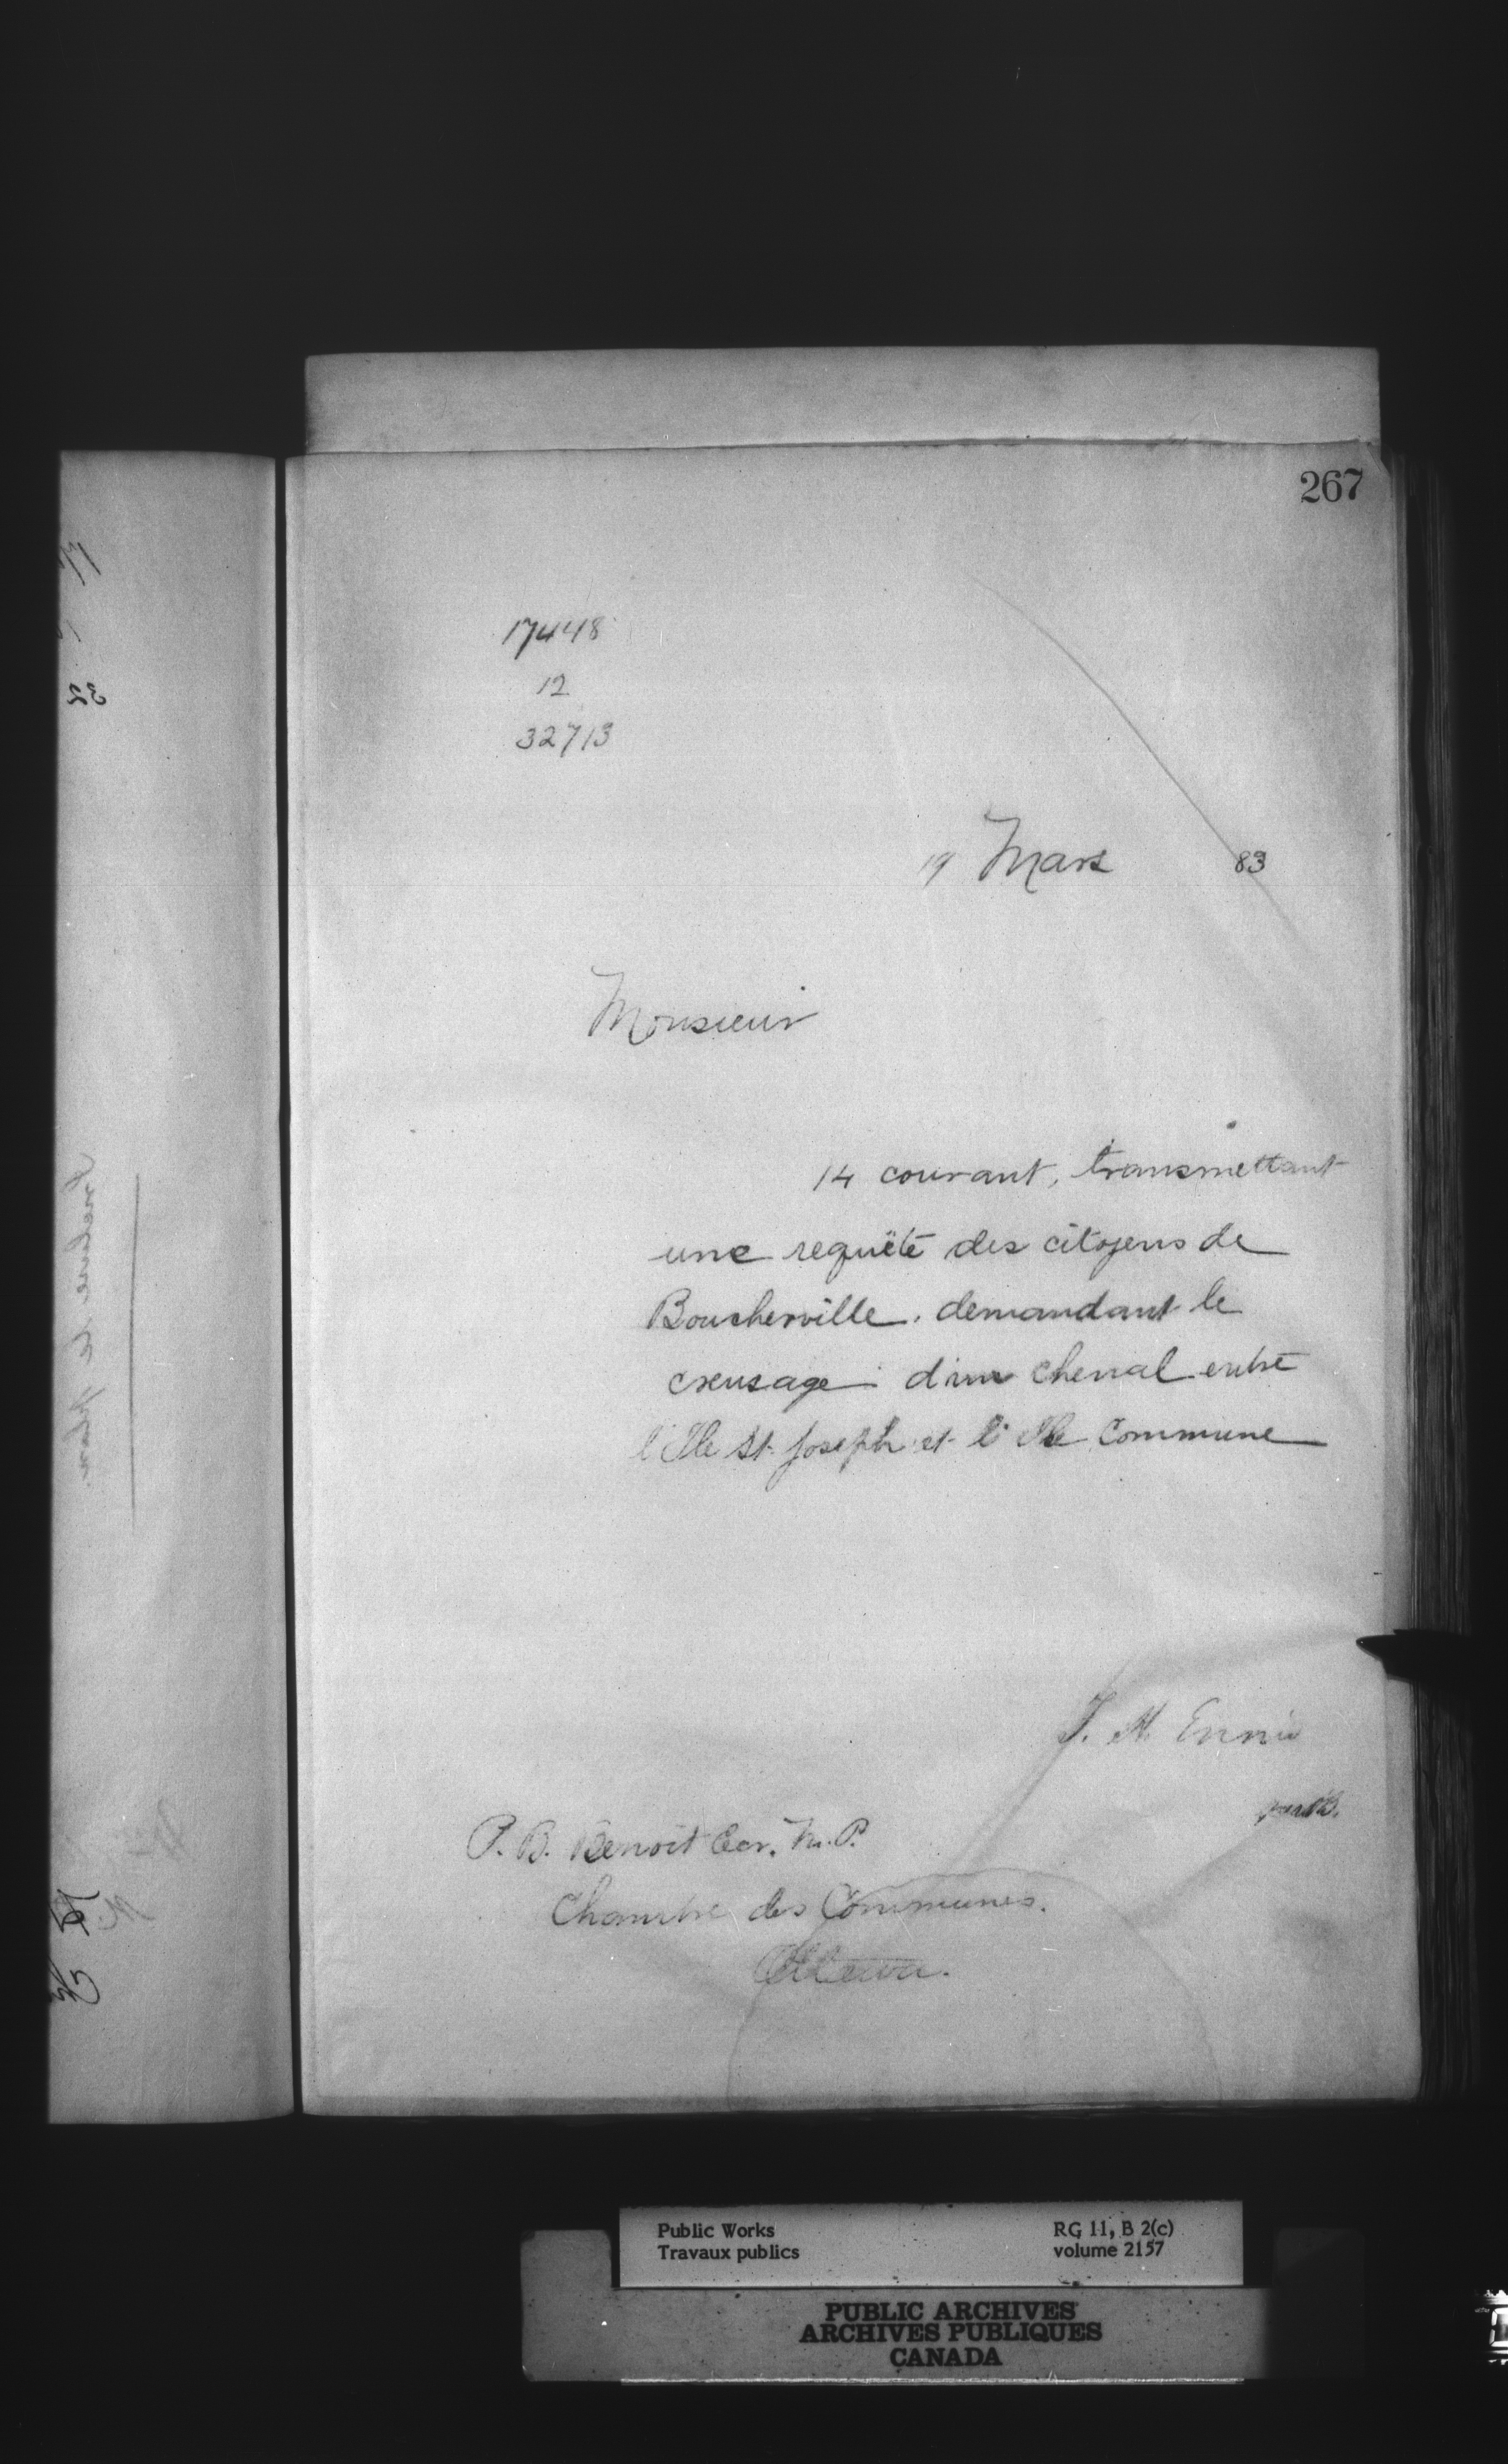 267
17448
12
32713
19 Mars 83
Monsieur
14 courant, transmettant
une requête des citoyens de
Boucherville, demandant le
creusage d'un chenal entre
l'Ile St. Joseph et l'Ile Commune
F. H. Ennis
P. B. Benoit Ecr. M.P.
Chambre des Communes.
Ottawa.
Public Works RG 11, B 2(c)
Travaux publics volume 2157
PUBLIC ARCHIVES
ARCHIVES PUBLIQUES
CANADA